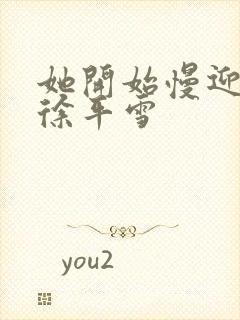 她開始慢迎
徐平雪
you2